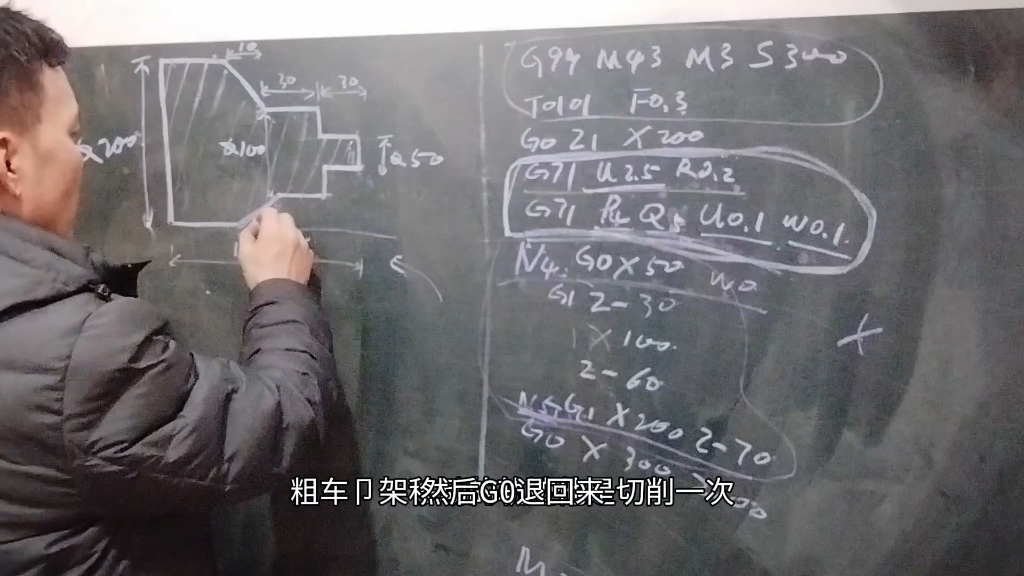 10
30
30
ø200
ø100
ø50
G99 M43 M3 S300
T0101 F0.3
G0 Z1 X200
G71 U2.5 R0.2
G71 P4 Q5 U0.1 W0.1
N4 G0 X50 W0
G1 Z-30
X100.
Z-60
N5 G1 X200 Z-70
G0 X300
然后G0退回来
切削一次